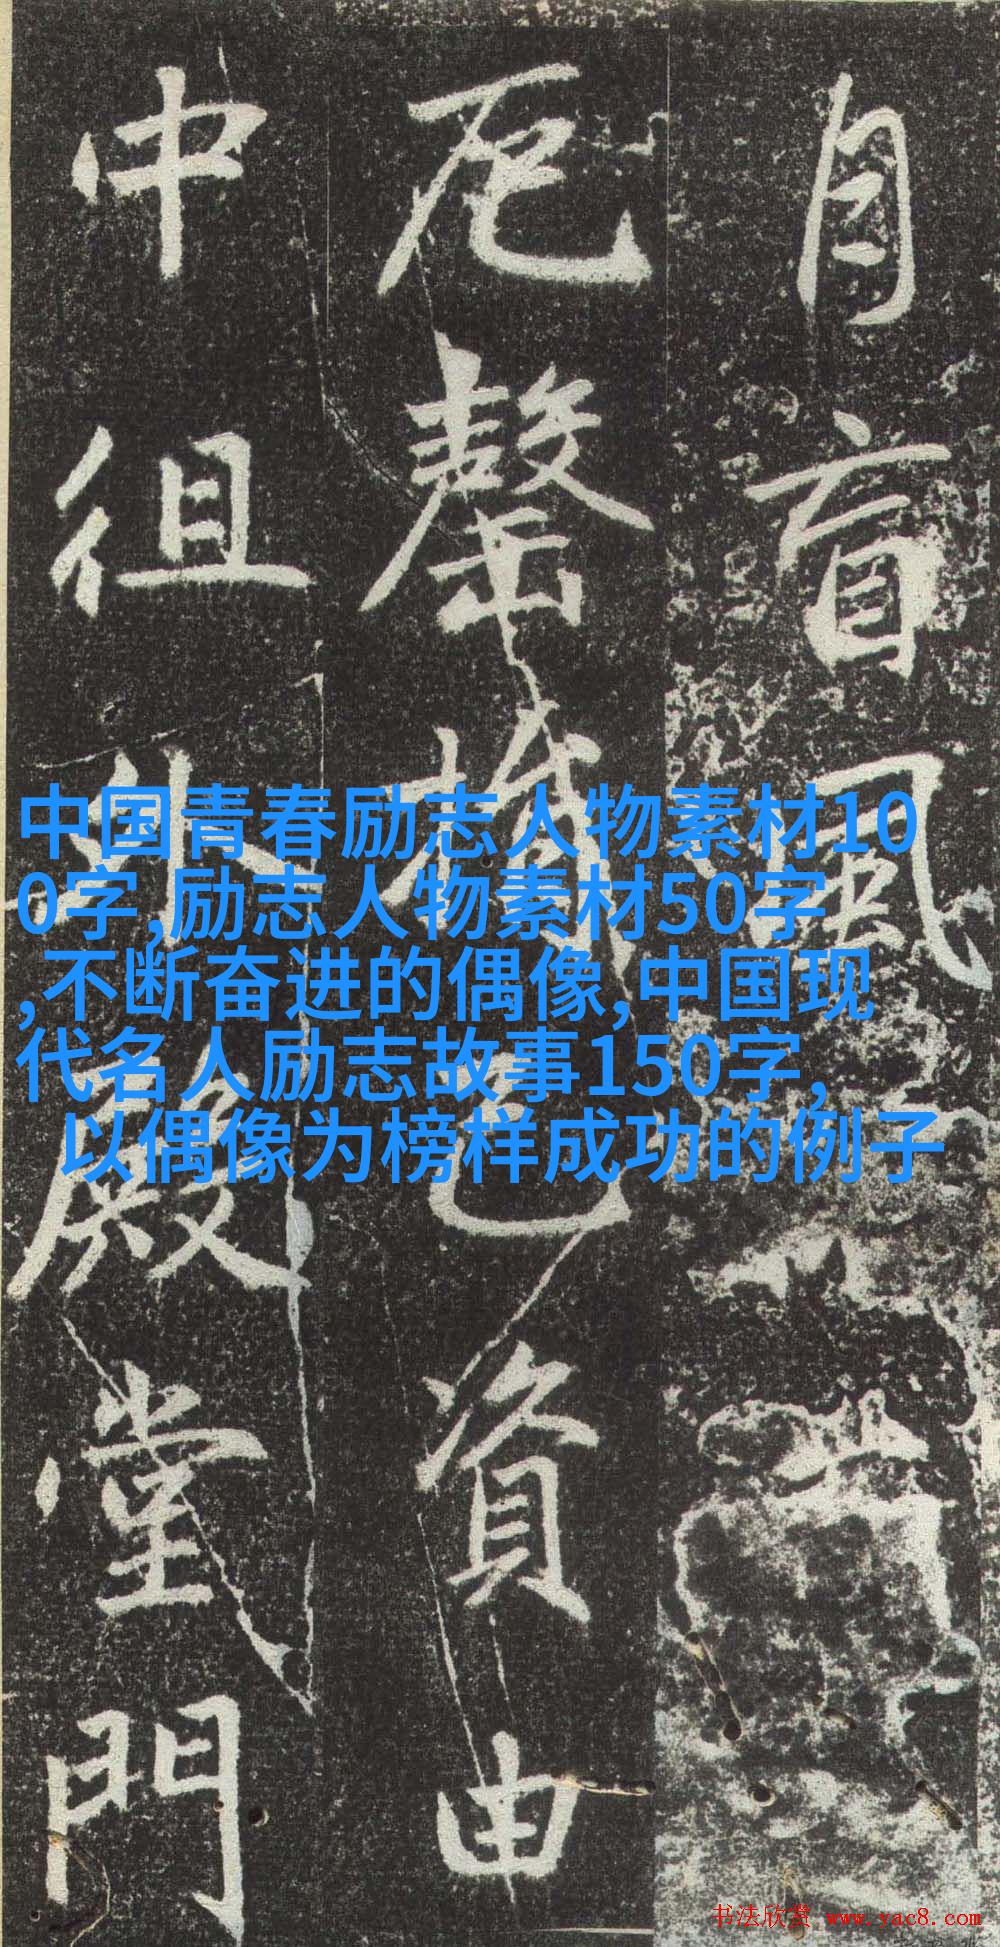 中国青春励志人物素材10
0字,励志人物素材50字
,不断奋进的偶像,中国现
代名人励志故事150字,
以偶像为榜样成功的例子
自盲風
厄罄資由
中徂堂門
书法欣赏 www.yac8.com